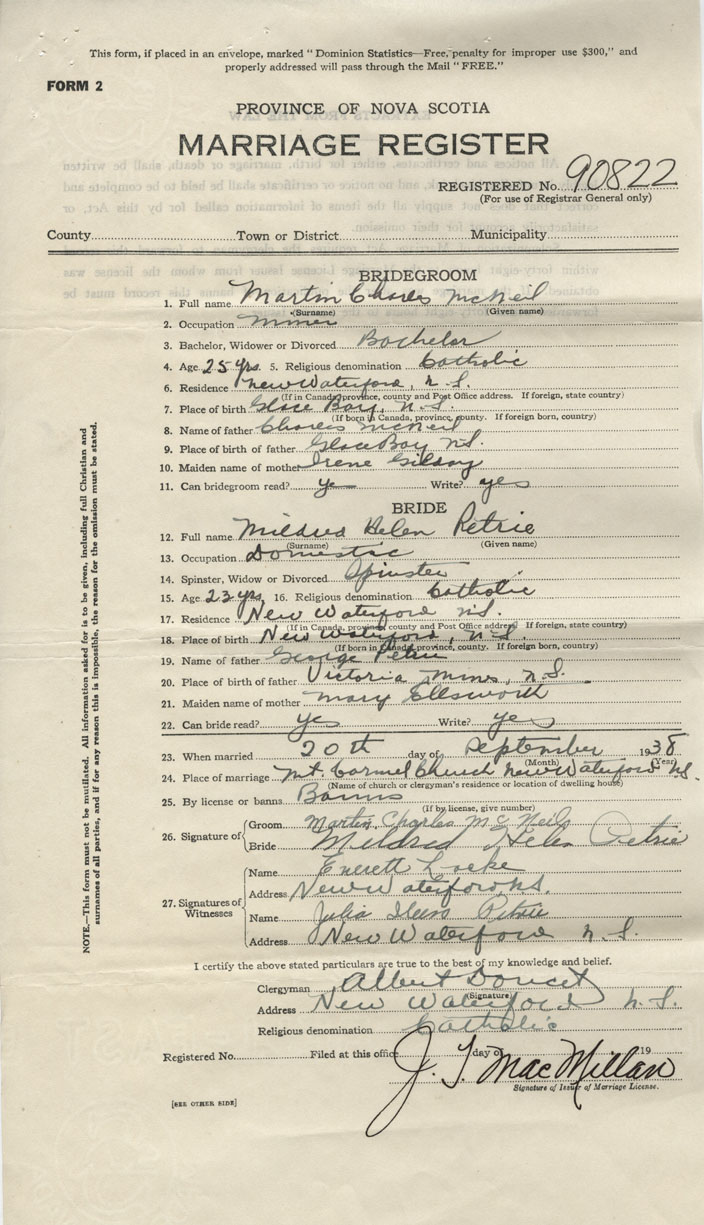 This form, if placed in an envelope, marked "Dominion Statistics—Free, penalty for improper use $300," and
properly addressed will pass through the Mail "FREE."
FORM 2
PROVINCE OF NOVA SCOTIA
MARRIAGE REGISTER
REGISTERED No. 90822
(For use of Registrar General only)
County Town or District Municipality
BRIDEGROOM
1. Full name Martin Charles McNeil
(Surname) (Given name)
2. Occupation miner
3. Bachelor, Widower or Divorced Bachelor
4. Age 25 yrs. 5. Religious denomination Catholic
6. Residence New Waterford, N.S.
(If in Canada, province, county and Post Office address. If foreign, state country)
7. Place of birth Glace Bay, N.S.
(If born in Canada, province, county. If foreign born, country)
8. Name of father Charles McNeil
9. Place of birth of father Glace Bay N.S.
10. Maiden name of mother Irene
11. Can bridegroom read? yes Write? yes
BRIDE
12. Full name Mildred Helen Petrie
(Surname) (Given name)
13. Occupation Domestic
14. Spinster, Widow or Divorced Spinster
15. Age 23 yrs, 16. Religious denomination Catholic
17. Residence New Waterford N.S.
(If in Canada, province, county and Post Office address If foreign, state country)
18. Place of birth New Waterford, N.S.
(If born in Canada, province, county. If foreign born, country)
19. Name of father George Petrie
20. Place of birth of father Victoria Mines, N.S.
21. Maiden name of mother Mary Ellsworth
22. Can bride read? yes Write? yes
23. When married 20th day of September 1938
(Month) (Year)
24. Place of marriage Mt. Carmel Church New Waterford N.S.
(Name of church or clergyman's residence or location of dwelling house)
25. By license or banns Banns
(If by license, give number)
26. Signature of Groom Martin Charles McNeil
Bride Mildred Helen Petrie
27. Signatures of Witnesses
Name Everett Locke
Address New Waterford N.S.
Name Julia Petrie
Address New Waterford N.S.
I certify the above stated particulars are true to the best of my knowledge and belief.
Clergyman Albert Doucet
(Signature)
Address New Waterford N.S.
Religious denomination Catholic
Registered No. Filed at this office day of 19
J. T. MacMillan
Signature of Issuer of Marriage License.
[SEE OTHER SIDE]
NOTE.—This form must not be mutilated. All information asked for is to be given, including full Christian and
surnames of all parties, and if for any reason this is impossible, the reason for the omission must be stated.